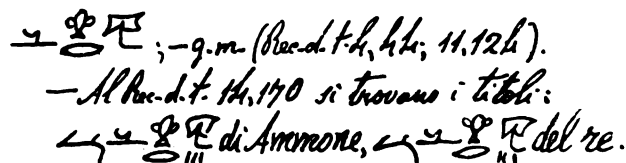 ; – g.m. (Rec. d. t. 4, 44; 11, 124).
– Al Rec. d. t. 14, 170 si trovano i titoli:
di Ammone, del re.